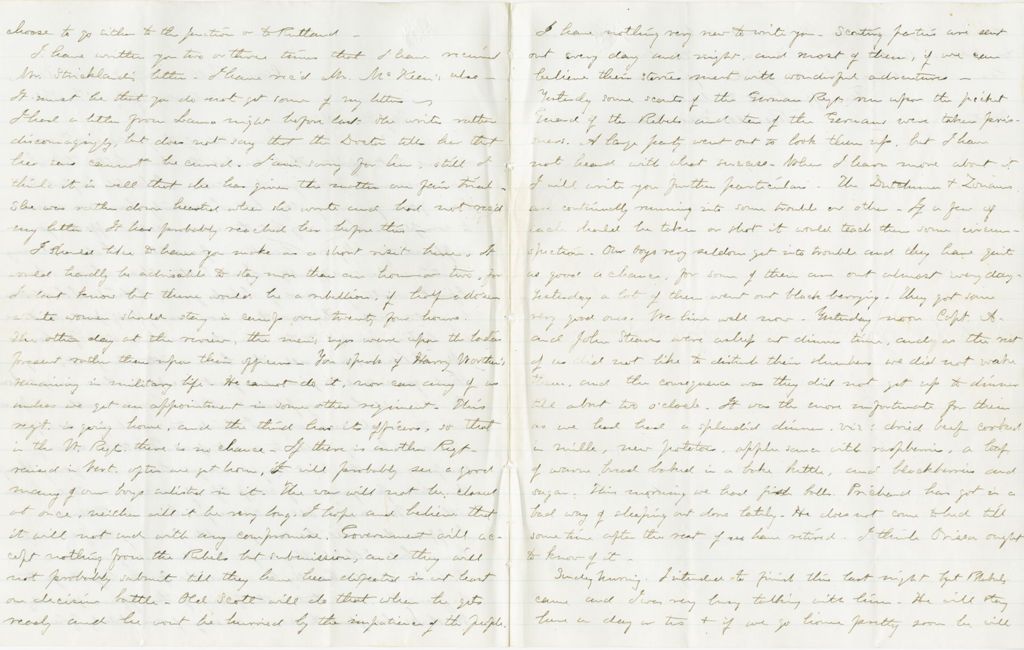 choose to go either to the junction or to Rutland -
I have written you two or three times that I have received
Mr. Strickland's letter. I have rec'd Mr. McKeen's also -
It must be that you do not get some of my letters -
I had a letter from night before last. She writes rather
discouragingly, but does not say that the Doctor tells her that
her case cannot be cured. I am sorry for her, still I
think it is well that she has given the matter one fair trial -
She was rather down hearted when she wrote and had not rec'd
my letter. It has probably reached her before this -
I should like to have you make us a short visit here. It
would hardly be advisable to stay more than an hour or two, for
I dont know but there would be a rebellion, if half a dozen
white women should stay in camp over twenty four hours.
The other day at the review, the men's eyes were upon the ladies
present rather than upon their officers - You speak of Harry Worthen's
remaining in military life. He cannot do it, nor can any of us
unless we get an appointment in some other regiment. This
regt. is going home, and the third has its officers, so that
in the Vt. Regt. there is no chance - If there is another Regt.
raised in Vert. after we get home, I will probably see a good
many of our boys enlisted in it. The war will not be closed
at once, neither will it be very long. I hope and believe that
it will not end with any compromise. Government will ac-
cept nothing from the Rebels but submission, and they will
not probably submit till they have been defeated in at least
one decisive battle - Old Scott will do that when he gets
ready and he wont be hurried by the impatience of the people.
I have nothing very new to write you - Scouting parties are sent
out every day and night, and most of them, if we can
believe their stories meet with wonderful adventures -
Yesterday some scouts of the German Regt. run upon the picket
guard of the Rebels and ten of the Germans were taken pris-
oners. A large party went out to look them up, but I have
not heard with what success - When I learn more about it
I will write you further particulars - The Dutchmen &
are continually running into some trouble or other - If a few of
each should be taken or shot it would teach them some circum-
spection - Our boys very seldom get into trouble and they have quite
as good a chance, for some of them are out almost every day -
Yesterday a lot of them went out black berrying - They got some
very good ones. We live well now - Yesterday noon Capt. A.
and John Stearns were asleep at dinner time, and as the rest
of us did not like to disturb their slumbers we did not wake
them, and the consequence was they did not get up to dinner
till about two o'clock. It was the more unfortunate for them
as we had had a splendid dinner. viz: dried beef cooked
in milk, new potatoes, apple sauce with raspberries, a loaf
of warm bread baked in a bake kettle, and blackberries and
sugar. This morning we had fish balls. Prichard has got in a
bad way of sleeping out doors lately. He does not come to bed till
some time after the rest of us have retired. I think Orissa ought
to know of it -
Sunday Morning. I intended to finish this last night but
came and I was very busy talking with him. He will stay
here a day or two & if we go home pretty soon he will